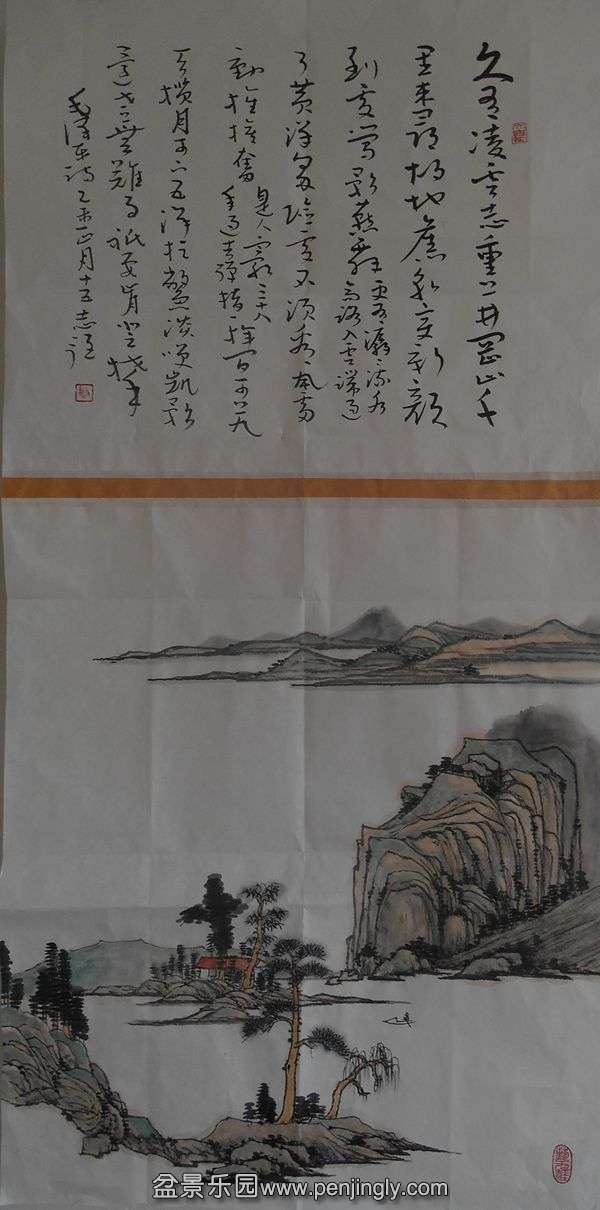 久有凌云志重上井岡山千
里来尋故地舊貌变新颜
到处莺歌燕舞更有潺潺流水高路入云端過
了黄洋界险处不须看风雷
動旌旗奮是人寰三十八年過去弹指一挥间可上九
天揽月可下五洋捉鳖谈笑凯歌
还世上無難事祗要肯登攀
毛泽东詩乙未正月十五志強
盆景乐园www.penjingly.com